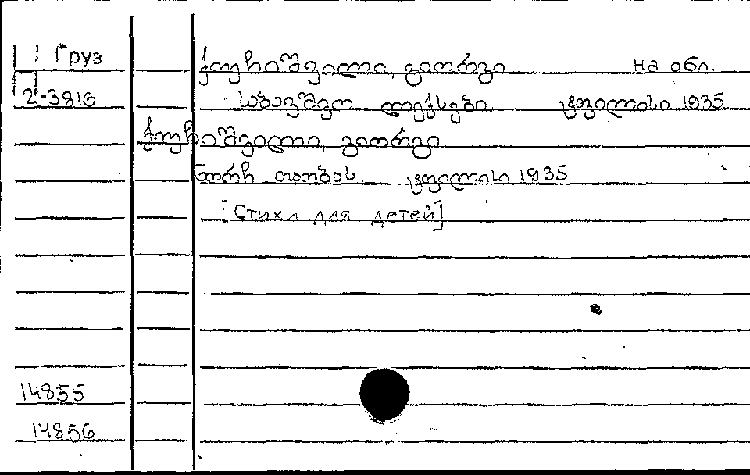 Груз ქუჩიშვილი, გიორგი На обл.
2-3816 საბავშვო ლექსები. ტფილისი 1935
ქუჩიშვილი, გიორგი
ნორჩ თაობას. ტფილისი 1935
[Стихи для детей]
14855
14856